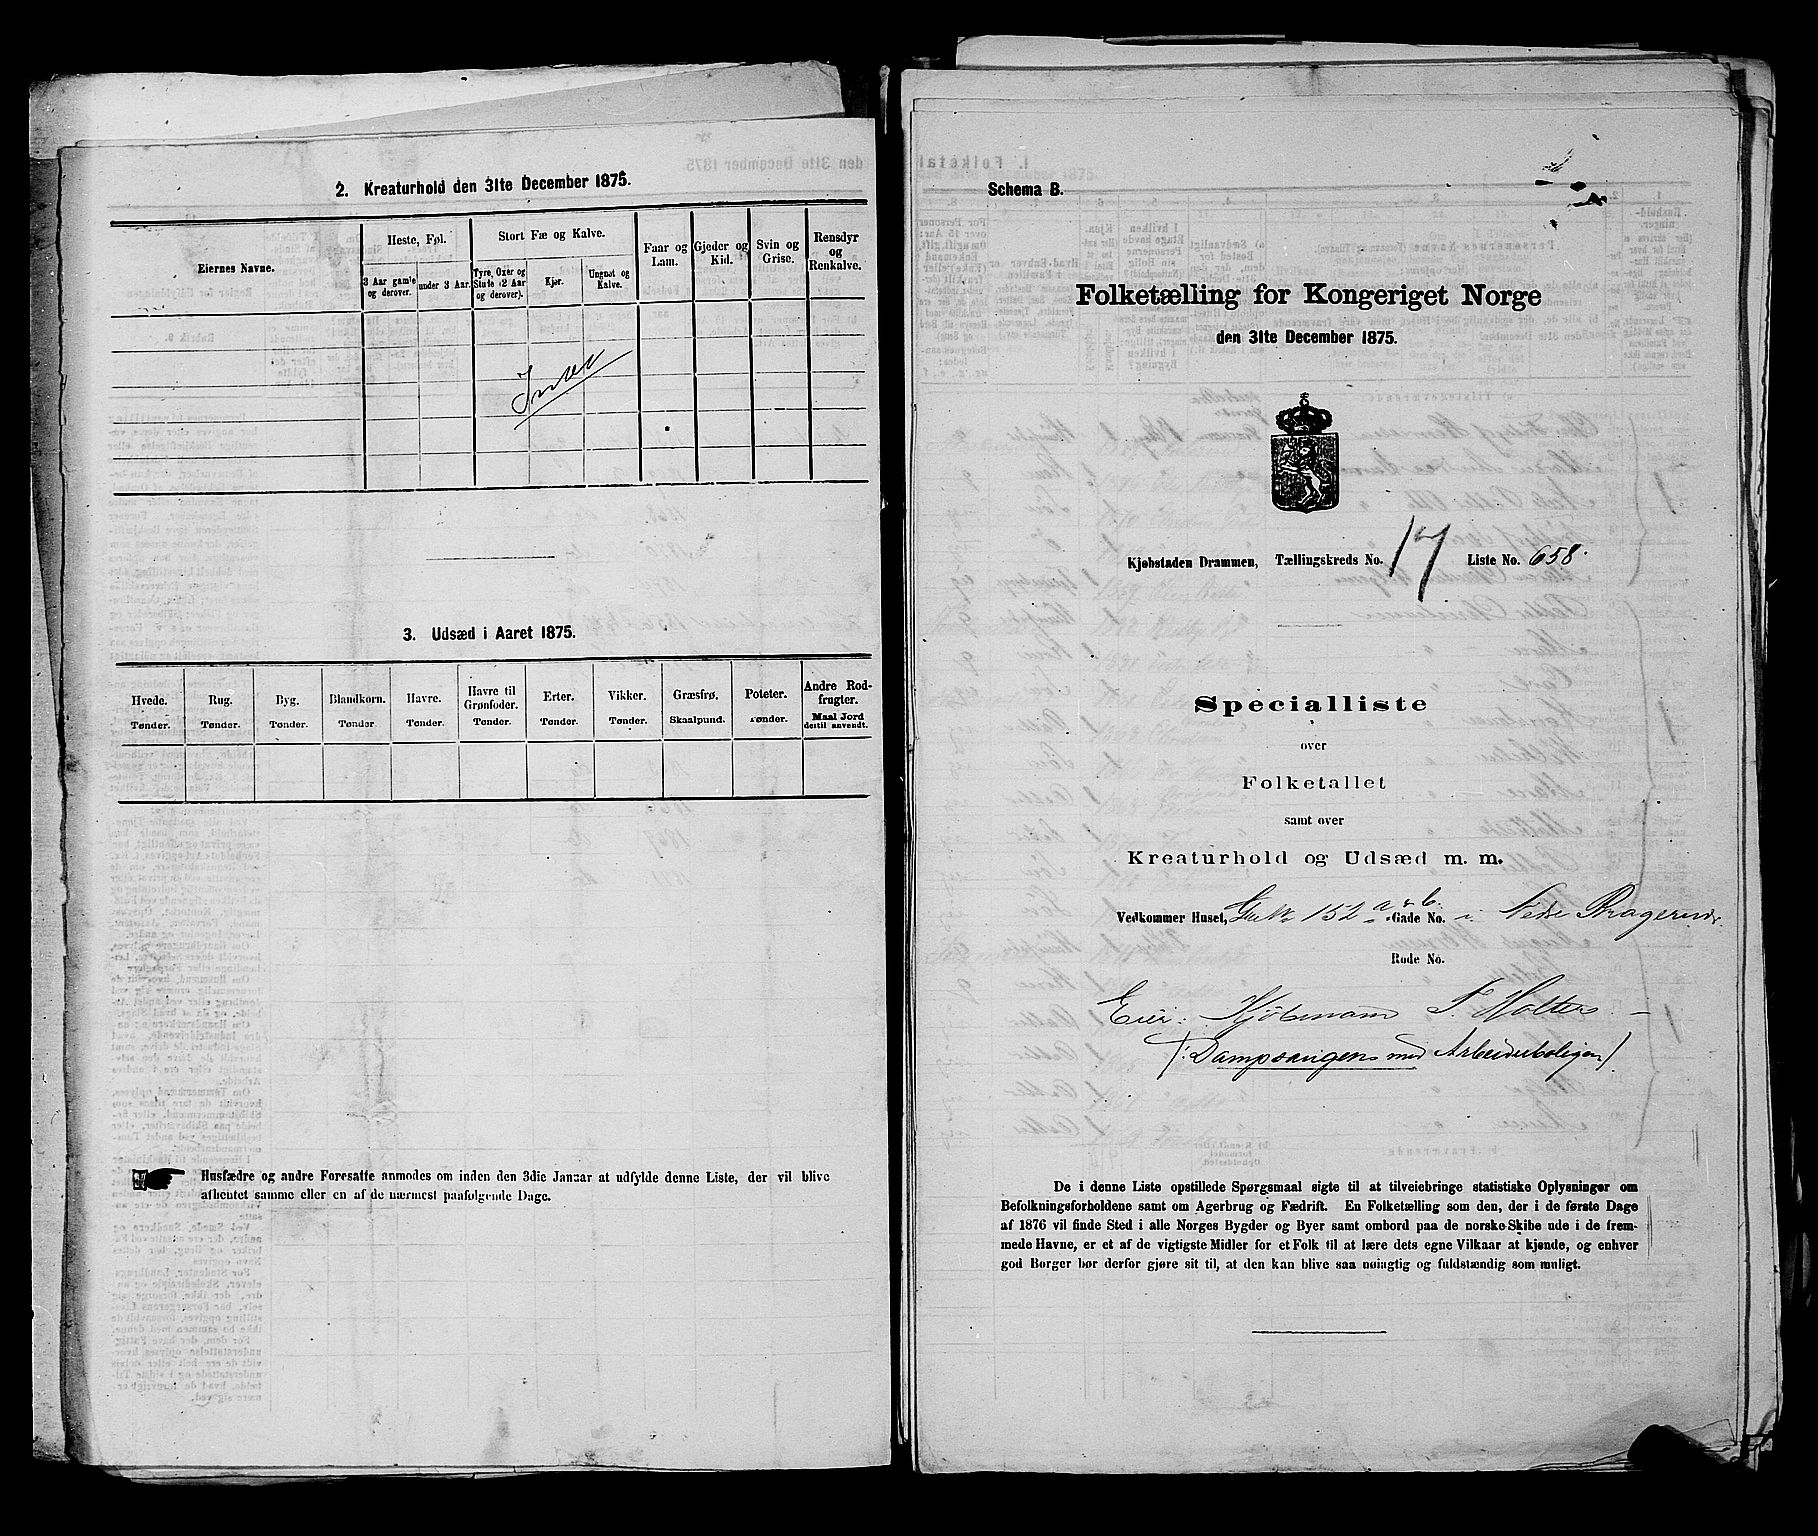 2. Kreaturhold den 31te December 1875.
Eiernes Navne.
Heste, Føl.
Stort Fæ og Kalve.
Faar og Lam.
Gjeder og Kid.
Svin og Grise.
Rensdyr og Renkalve.
3 Aar gamle og derover.
under 3 Aar.
Tyre, Oxer og Stude (2 Aar og derover).
Kjør.
Ungnøt og Kalve.
3. Udsæd i Aaret 1875.
Hvede. Rug. Byg. Blandkorn. Havre. Havre til Grønfoder. Erter. Vikker. Græsfrø. Poteter. Andre Rodfrugter.
Tønder. Tønder. Tønder. Tønder. Tønder. Tønder. Tønder. Tønder. Skaalpund. Tønder. Maal Jord dertil anvendt.
Husfædre og andre Foresatte anmodes om inden den 3die Januar at udfylde denne Liste, der vil blive
afhentet samme eller en af de nærmest paafølgende Dage.
Schema B.
Folketælling for Kongeriget Norge
den 31te December 1875.
Kjøbstaden Drammen, Tællingskreds No. 17 Liste No. 658.
Specialliste
over
Folketallet
samt over
Kreaturhold og Udsæd m. m.
Vedkommer Huset, 152 a & b. Gade No. i Nedre Bragernes
Rode No.
Eier: Kjøbmand F. Holter
(: Dampsaugens med Arbeiderboliger)
De i denne Liste opstillede Spørgsmaal sigte til at tilveiebringe statistiske Oplysninger om
Befolkningsforholdene samt om Agerbrug og Fædrift. En Folketælling som den, der i de første Dage
af 1876 vil finde Sted i alle Norges Bygder og Byer samt ombord paa de norske Skibe ude i de frem-
mede Havne, er et af de vigtigste Midler for et Folk til at lære dets egne Vilkaar at kjende, og enhver
god Borger bør derfor gjøre sit til, at den kan blive saa nøiagtig og fuldstændig som muligt.